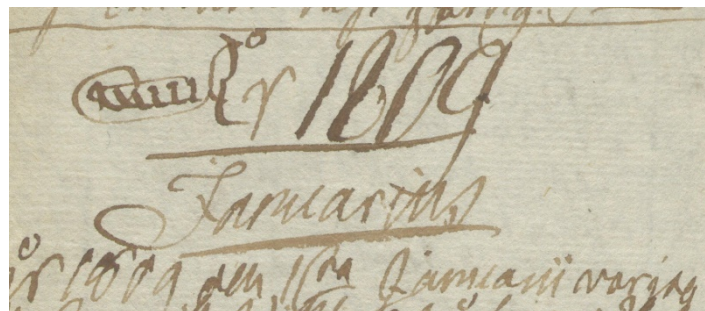 År 1809
Januarius
År 1809 den 1sta Januarii var jag